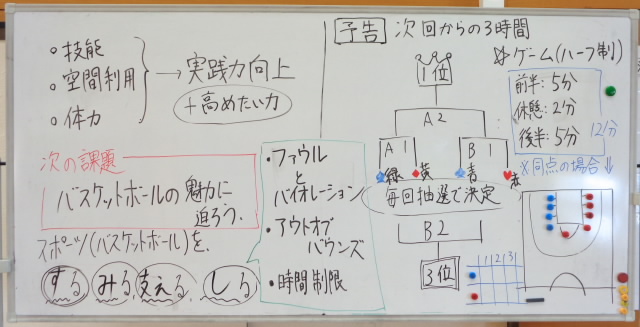 ○ 技能
○ 空間利用
○ 体力
→ 実践力向上
+高めたい力
次の課題
バスケットボールの魅力に
迫ろう.
スポーツ(バスケットボール)を、
する みる 支える しる
・ファウル
と
バイオレーション
・アウトオブ
バウンズ
・時間制限
予告 次回からの3時間
1位
A2
A1 B1
緑 黄 青 赤
毎回抽選で決定
B2
3位
ゲーム(ハーフ制)
前半:5分
休憩:2分
後半:5分
12分
※同点の場合↓
1 2 3